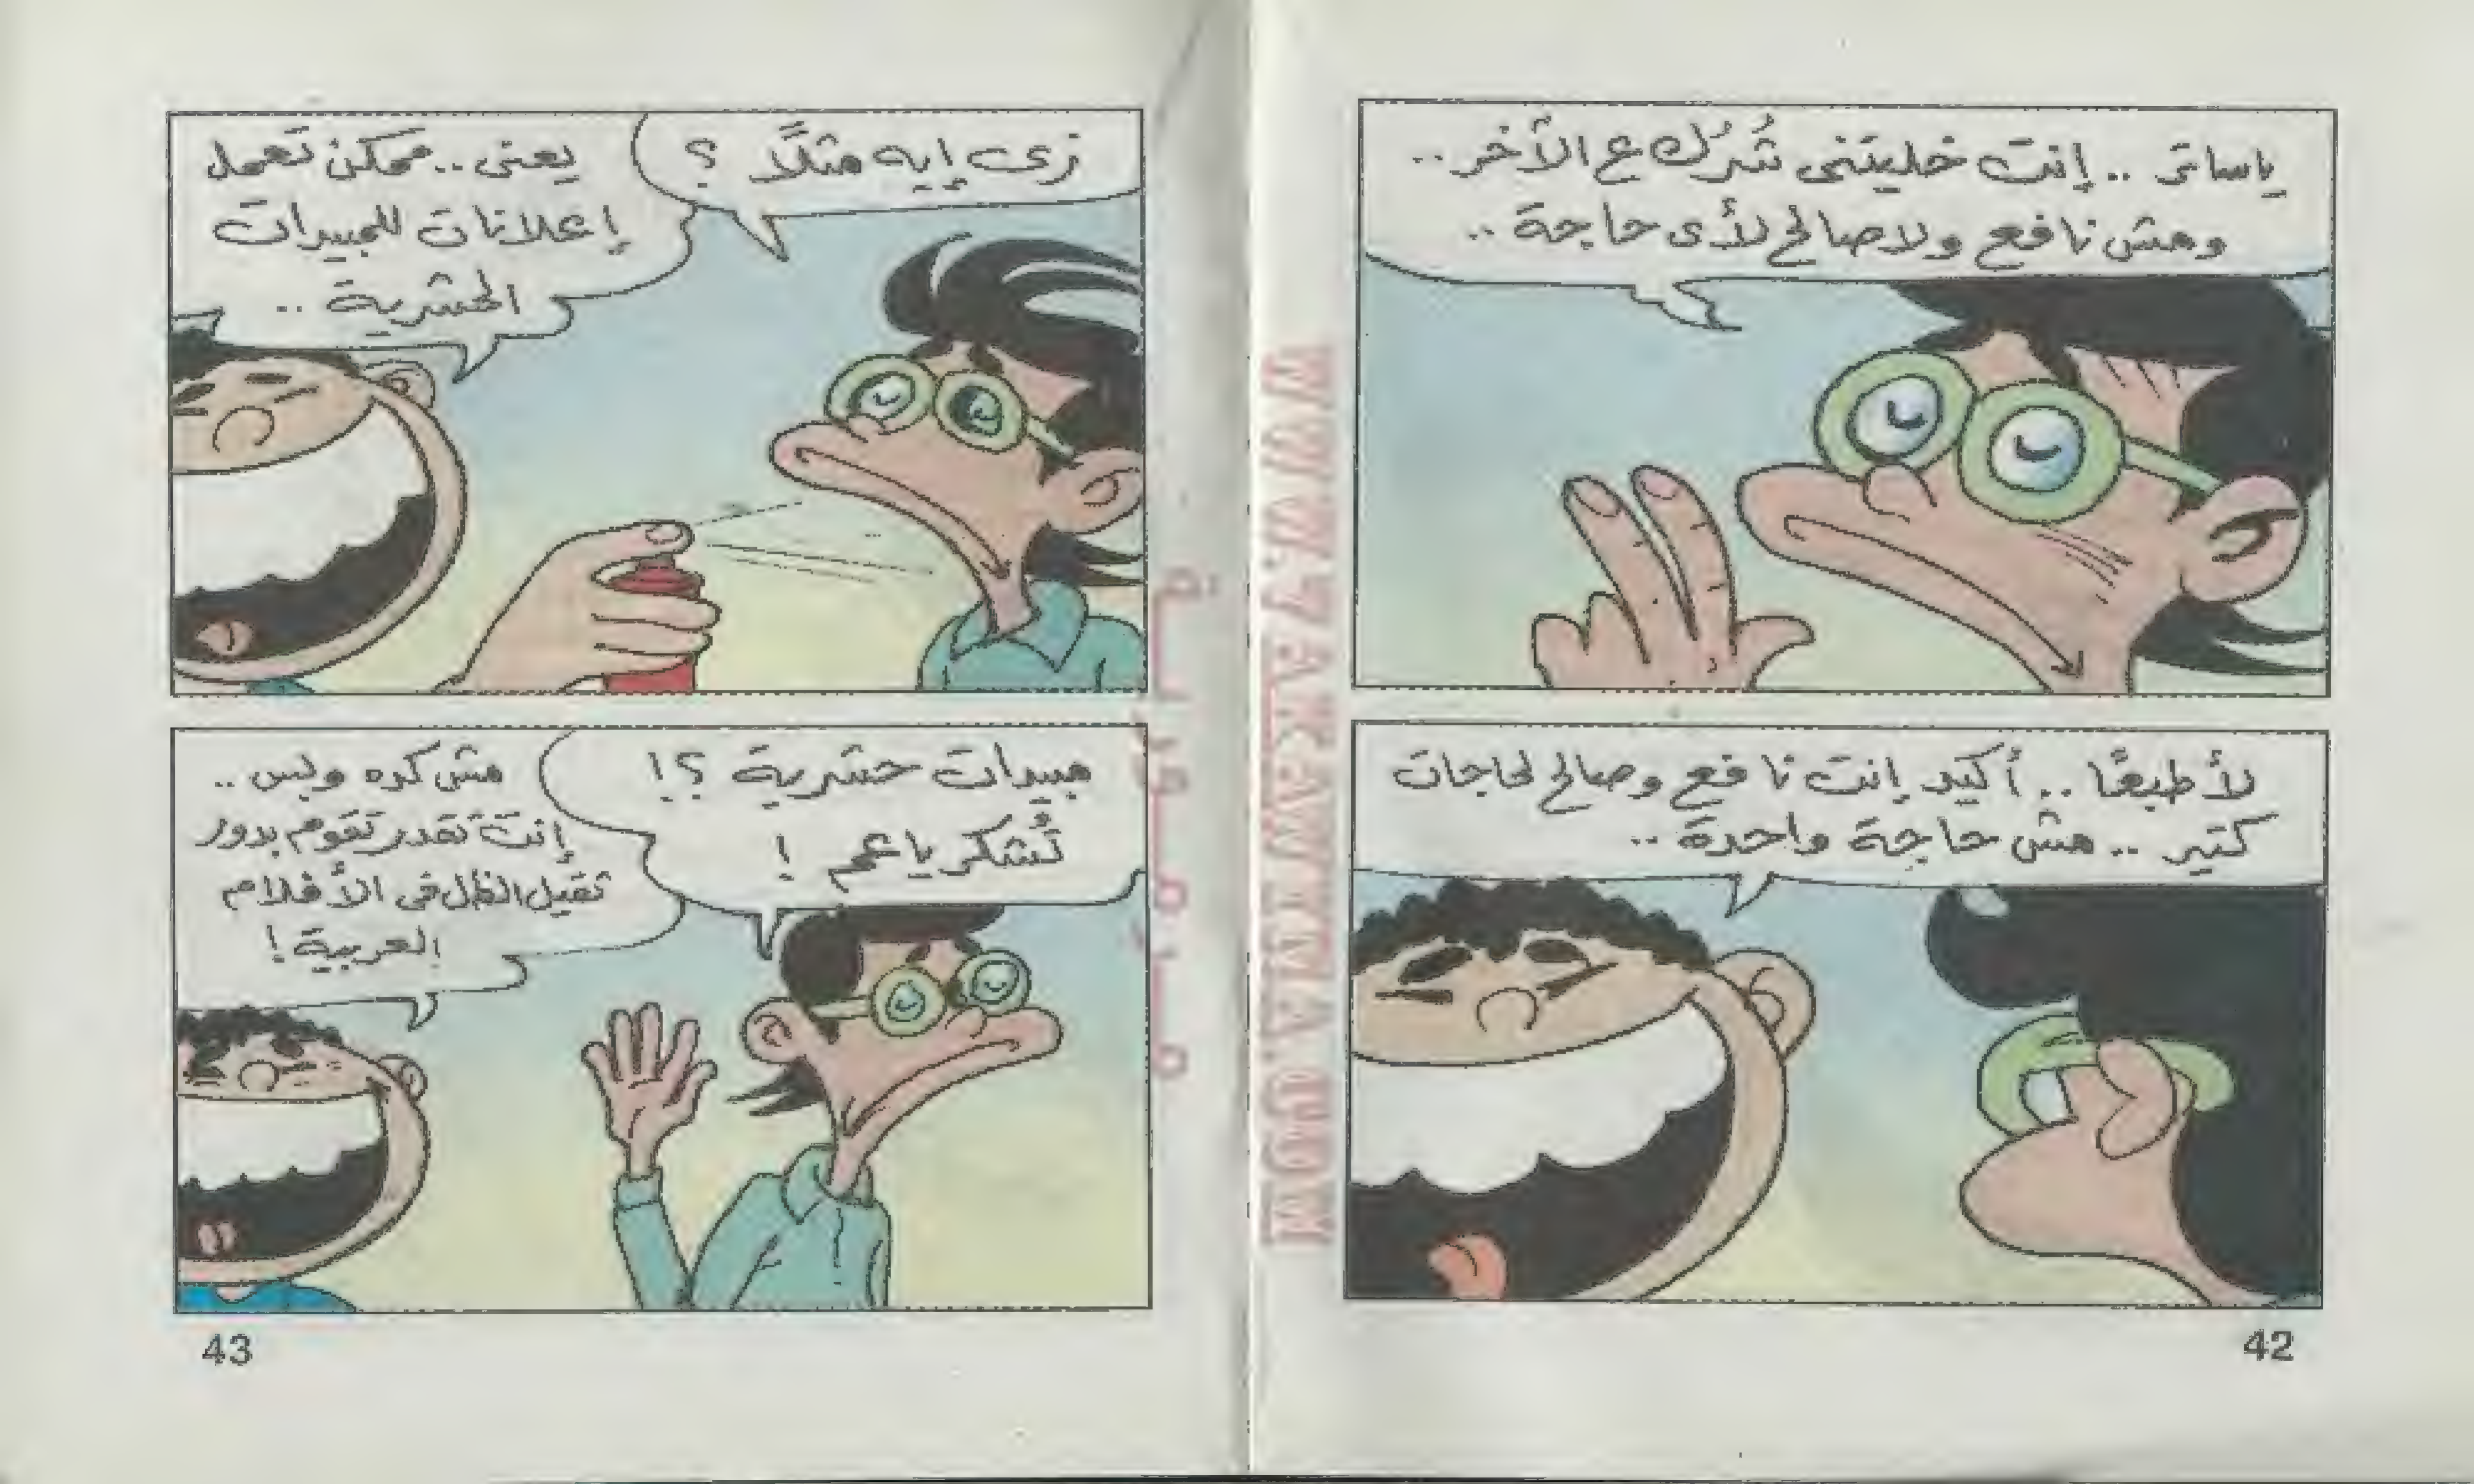 ياساتر .. إنت خليتنى شُرُك ع الأخر ..
ومش نافع ولا صالح لأى حاجة ..
لأ طبعًا .. أكيد إنت نافع وصالح لحاجات
كتير .. مش حاجة واحدة ..
42
زى إيه مثلًا ؟
يعنى .. ممكن تعمل
إعلانات للمبيدات
الحشرية ..
مبيدات حشرية ؟!
تُشكر ياعم !
مش كده وبس ..
إنت تقدر تقوم بدور
ثقيل الظل فى الأفلام
العربية !
43